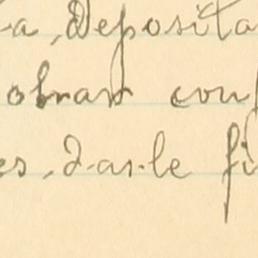 a, deposita
obran con
es, d-ar-le fi